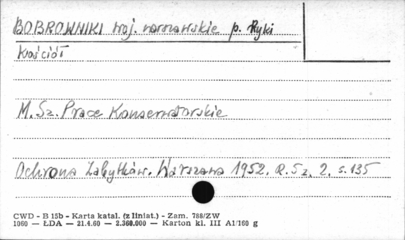 BOBROWNIKI woj. warszawskie p. Ryki
Kościół
M. Sz. Prace Konserwatorskie
Ochrona Zabytków. Warszawa 1952. R. 5 z. 2. s. 135
CWD - B 15b - Karta katal. (z liniat.) - Zam. 788/ZW
1060 — ŁDA — 21.4.60 — 2.360.000 — Karton kl. III A1/160 g